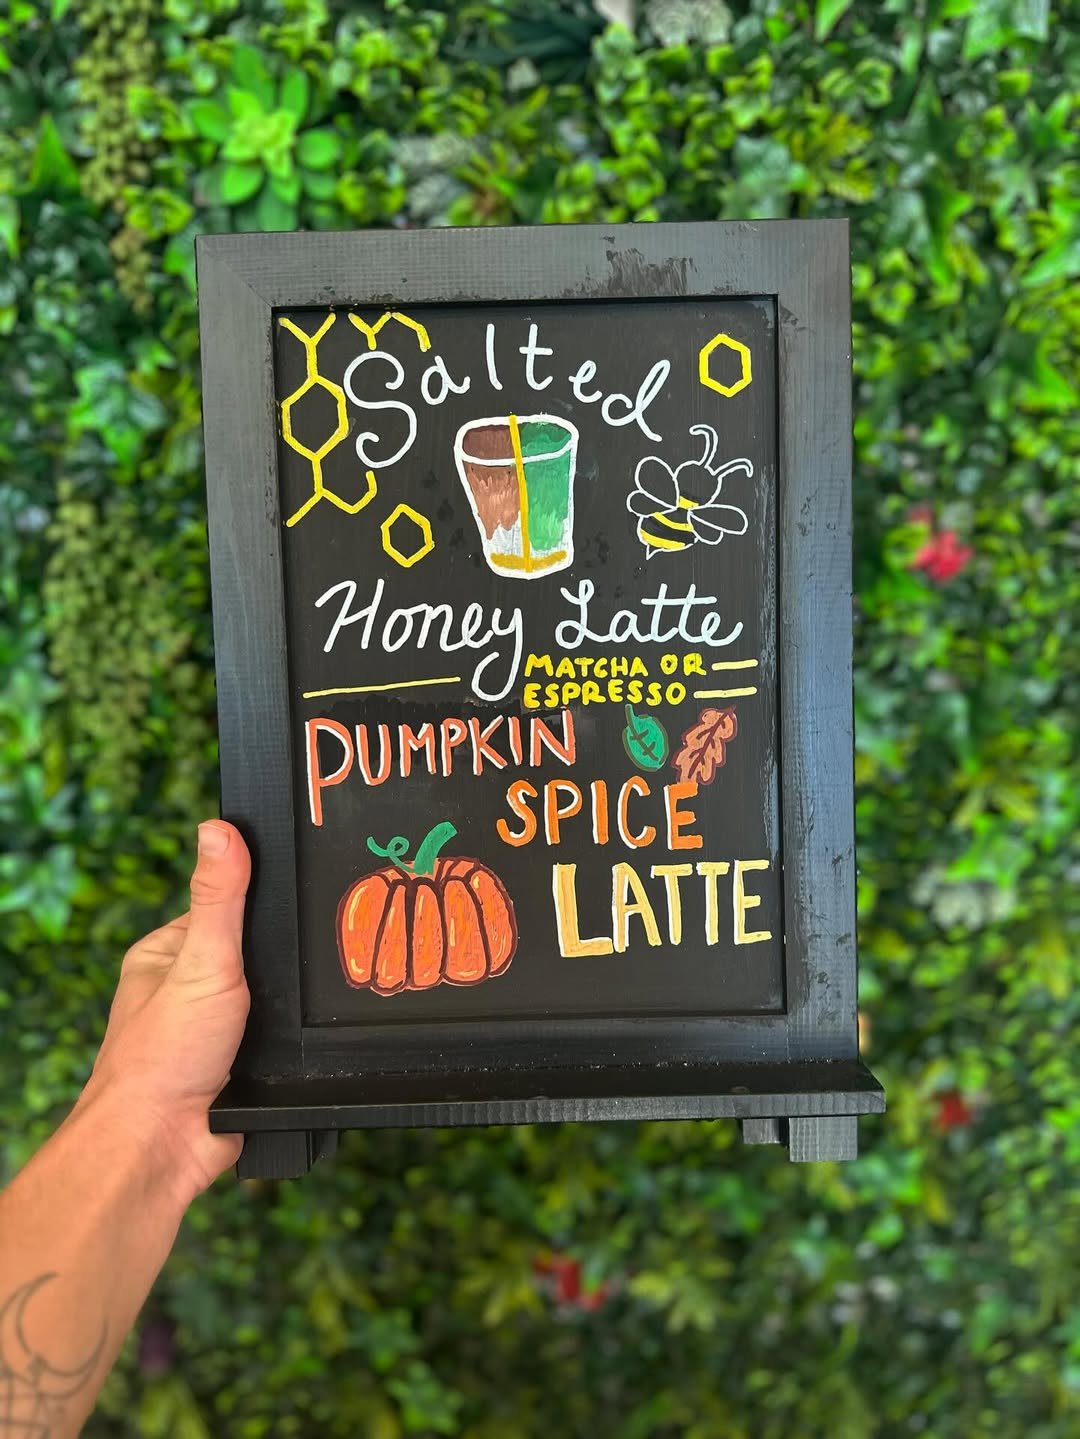 Salted
Honey Latte
MATCHA OR
ESPRESSO
PUMPKIN
SPICE
LATTE